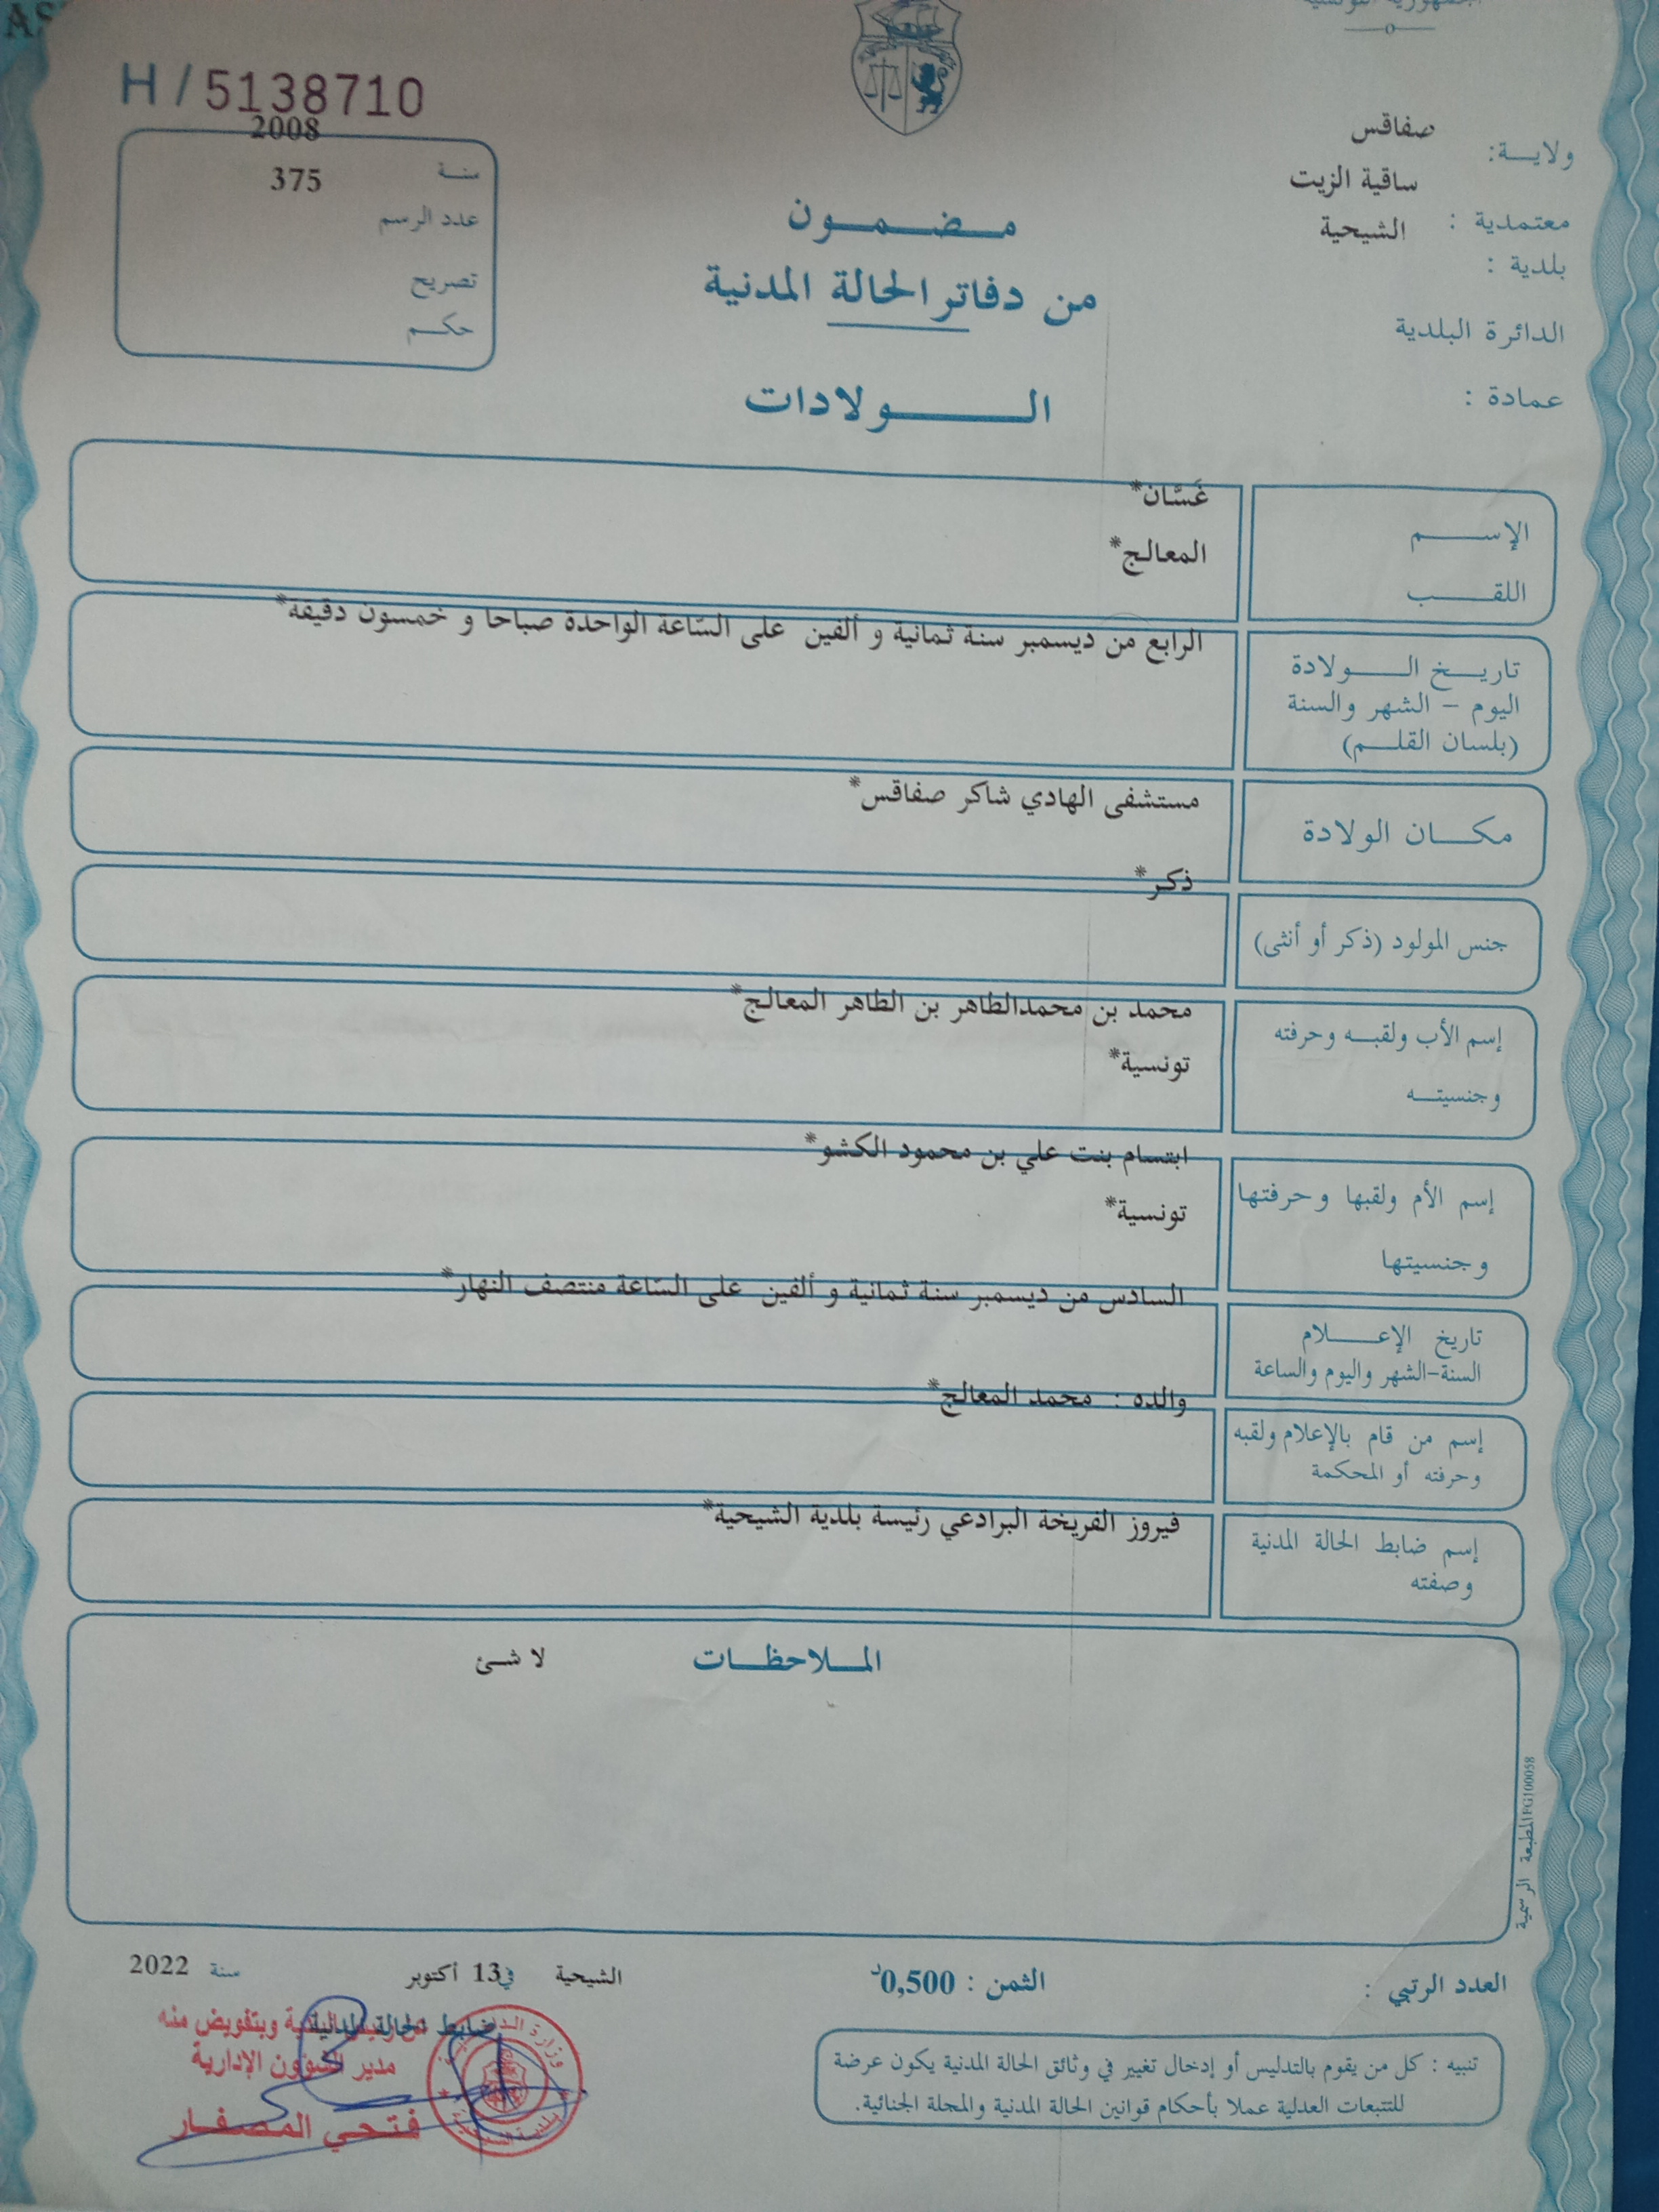 الجمهورية التونسية
H / 5138710
ولايـــة: صفاقس
معتمدية : ساقية الزيت
بلدية : الشيحية
الدائرة البلدية
عمادة :
2008
سنـــة
375
عدد الرسم
تصريح
حكـــم
مـــضـــمـــون
من دفاتر الحالة المدنية
الـــــولادات
الإســـــم
غَسَّان*
اللقـــــب
المعالج*
تاريـــخ الـــــولادة
اليوم – الشهر والسنة
(بلسان القلـــم)
الرابع من ديسمبر سنة ثمانية و ألفين على السّاعة الواحدة صباحا و خمسون دقيقة*
مكـــان الولادة
مستشفى الهادي شاكر صفاقس*
جنس المولود (ذكر أو أنثى)
ذكر*
إسم الأب ولقبـــه وحرفته
محمد بن محمدالطاهر بن الطاهر المعالج*
وجنسيتـــه
تونسية*
إسم الأم ولقبها وحرفتها
ابتسام بنت علي بن محمود الكشو*
وجنسيتها
تونسية*
تاريخ الإعـــــلام
السنة-الشهر واليوم والساعة
السادس من ديسمبر سنة ثمانية و ألفين على السّاعة منتصف النهار*
إسم من قام بالإعلام ولقبه
وحرفته أو المحكمة
والده : محمد المعالج*
إسم ضابط الحالة المدنية
وصفته
فيروز الفريخة البرادعي رئيسة بلدية الشيحية*
المـــلاحظـــات
لا شئ
المطبعة الرسمية FG100058
العدد الرتبي :
الثمن : 0,500د
الشيحية في 13 أكتوبر سنة 2022
ضابط الحالة المدنية
البلدية وبتفويض منه
مدير الشؤون الإدارية
فتحي المصفار
تنبيه : كل من يقوم بالتدليس أو إدخال تغيير في وثائق الحالة المدنية يكون عرضة
للتتبعات العدلية عملا بأحكام قوانين الحالة المدنية والمجلة الجنائية.